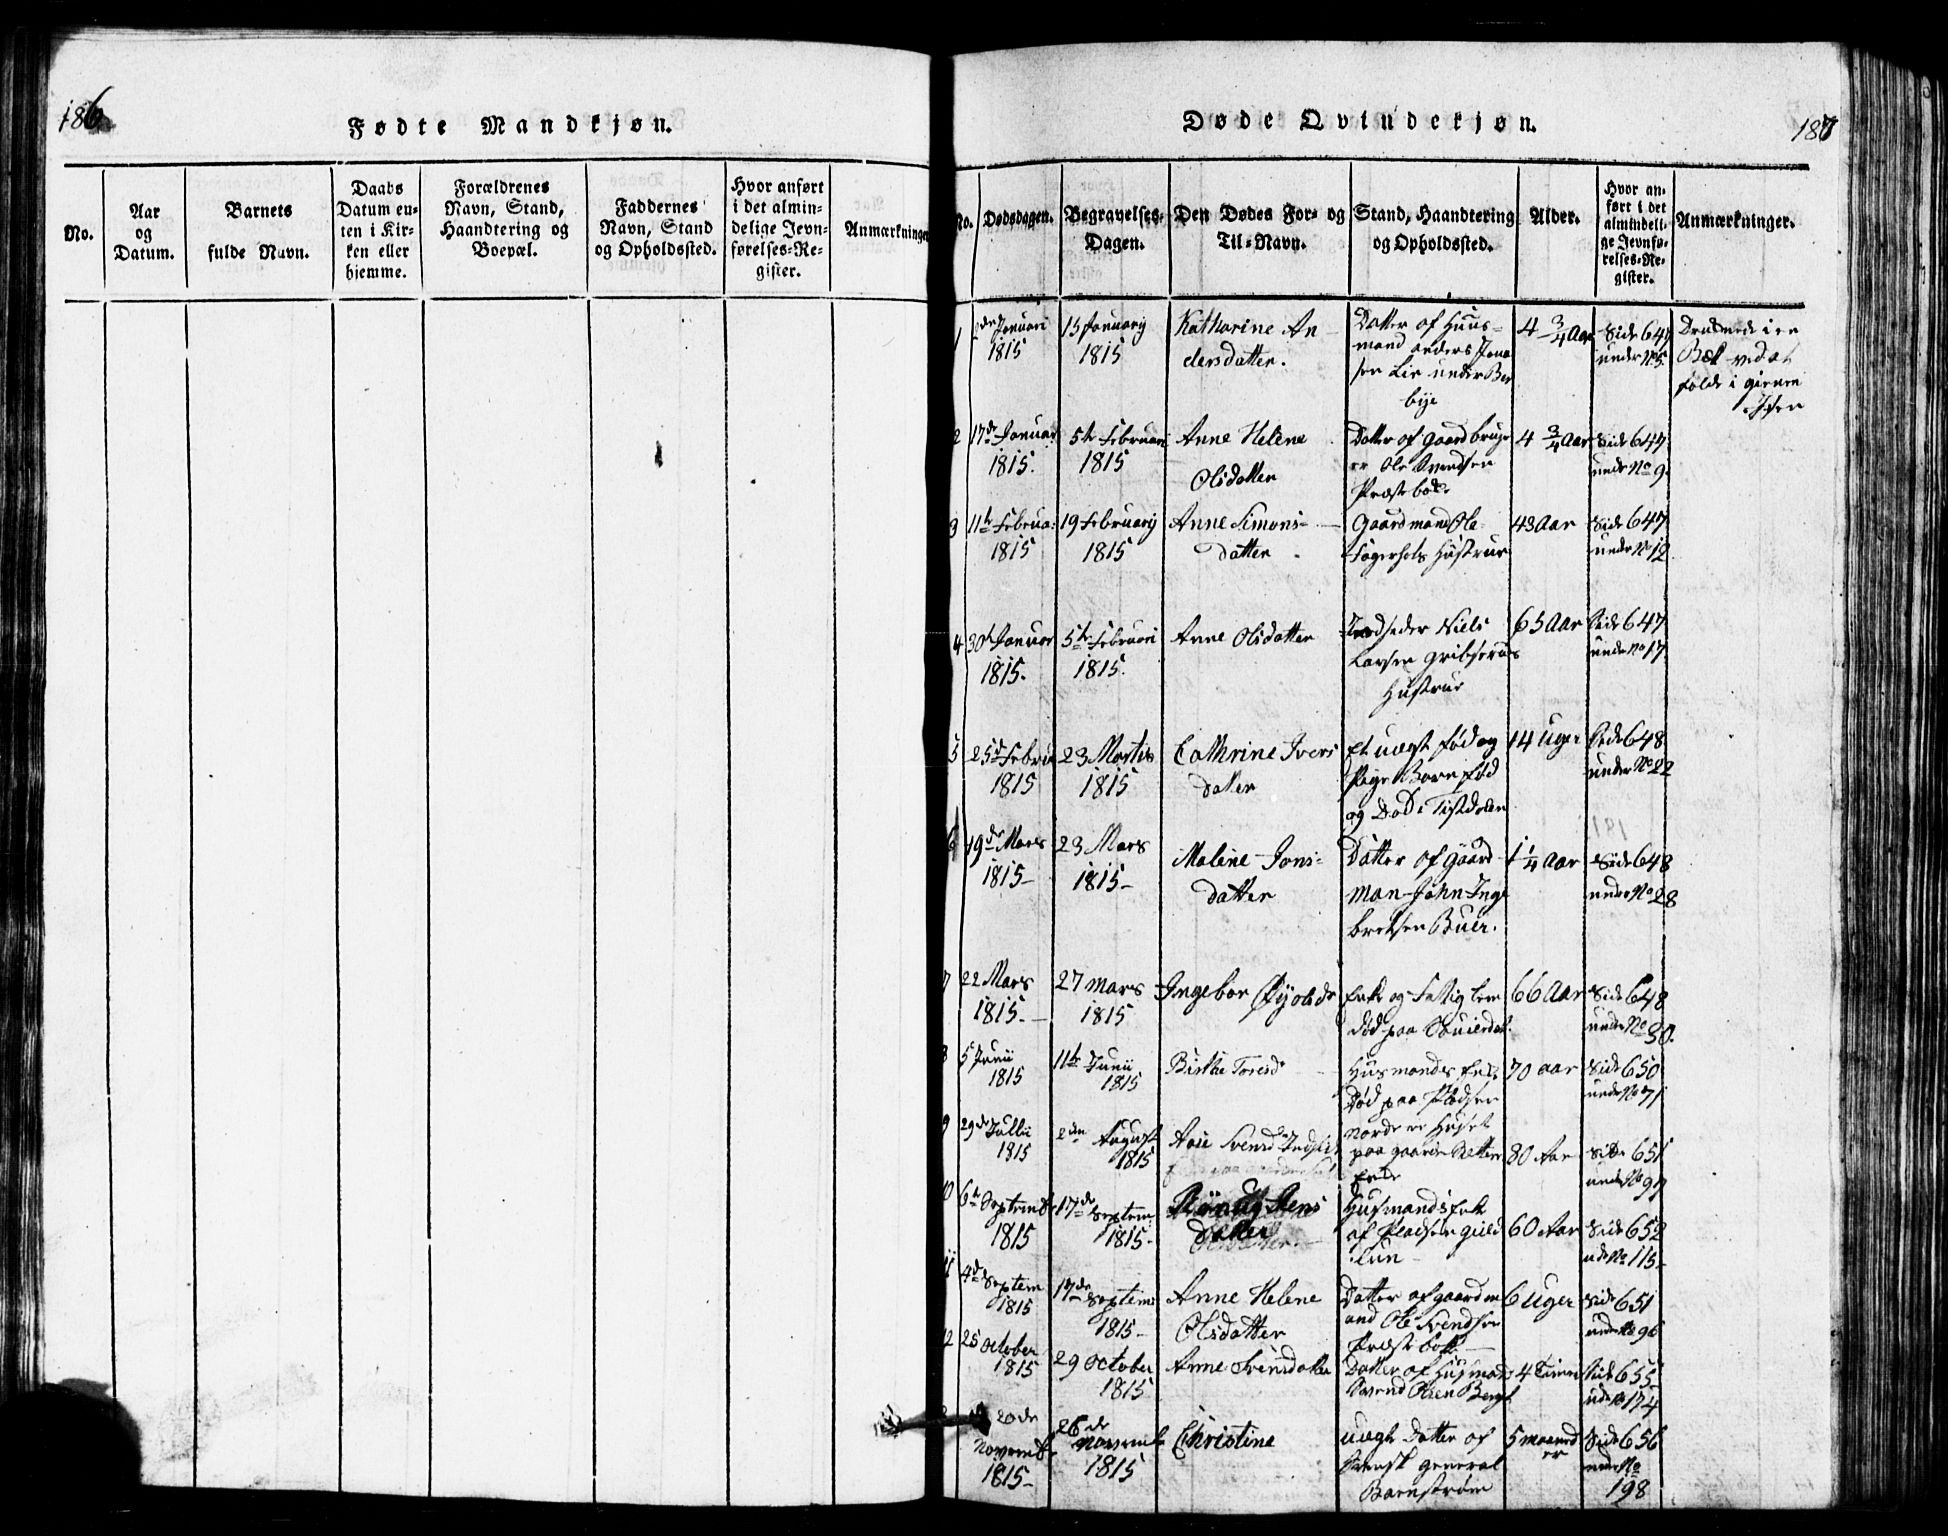 186
Fødte Mandkjøn.
No.
Aar
og
Datum.
Barnets
fulde Navn.
Daabs
Datum en-
ten i Kir-
ken eller
hjemme.
Forældrenes
Navn, Stand,
Haandtering og
Boepæl.
Faddernes
Navn, Stand
og Opholdssted.
Hvor anført
i det almin-
delige Jevn-
førelses-Re-
gister.
Anmærkninger
Døde Qvindekjøn.
187
No.
Dødsdagen.
Begravelses-
Dagen.
Den Dødes For- og
Til-Navn.
Stand, Haandtering
og Opholdssted.
Alder.
Hvor an-
ført i det
almindeli-
ge Jevnfø-
relses-Re-
gister.
Anmærkninger.
1
Januari
1815
15 Januarij
1815
Katharine An
dersdatter.
Datter af Huus-
mand Anders
Lie under Ber
bije
4 3/4 Aar
Side 647
under No 5.
Druknede i en
Bæk ved at
falde i giennem
Isen
2
17de Januar
1815.
5te Februari
1815
Anne Helene
Olsdatter
Datter af Gaardbruge
er Ole Svendsen
Præstebakke
4 3/4 Aar
Side 647
under No 9.
3
11te Februa:
1815
19 Februarij
1815
Anne Simons-
datter
Gaardmand Ole
Hustrue
43 Aar
Side 647
under No 12
4
30te Januar
1815.
5te Februari
1815.
Anne Olsdatter
Indsæder Niels
Larsen
Hustrue
65 Aar
Side 647
under No 17
5
25de Febru
1815
23 Martis
1815
Cathrine Ivers
datter
Et uægte fød og
Pige Barn fød
og Død i Tistedalen
14 Uger
Side 648
under No 22
6
19de Mars
1815-
23 Mars
1815-
Maline Jons-
datter
Datter af Gaard
man John Inge
bretsen Buer.
1 1/4 Aar
Side 648
under No 28
7
22 Mars
1815.
27 Mars
1815
Ingebor Øyolsdr
Enke og Fattig lem
død paa
66 Aar
Side 648
under No 30.
8
5 Junii
1815
11te Junii
1815
Birthe Toresdr
Husmands Enke
Død paa Pladsen
Norde re Huset
70 Aar
Side 650
under No 71
9
29de Julii
1815
2den August
1815
Aase Svensdr
paa gaarden
Enke
80 Aar
Side 651
under No 97
10
6te Septembr
1815
17de Septem:
1815-
Stens
datter
Husmands Enke
af Pladsen Guld
60 Aar
Side 652
under No 115
11
4de Septem
1815
17de Septem:
1815-
Anne Helene
Olsdatter
Datter af gaardm
and Ole Svendsen
Præstebakke
6 Uger
Side 651
under No 96
12
25 October
1815
29 October
1815
Anne Svensdatter
Datter af Husmand
Svend Olsen Berg
4 Timer
Side 655
under No 174
20de
Novembr
1815-
26de
Novembr
1815
Christine
uægte Datter af
Svensk General
Barnstrøm
5 maaned
er
Side 656
under No
198